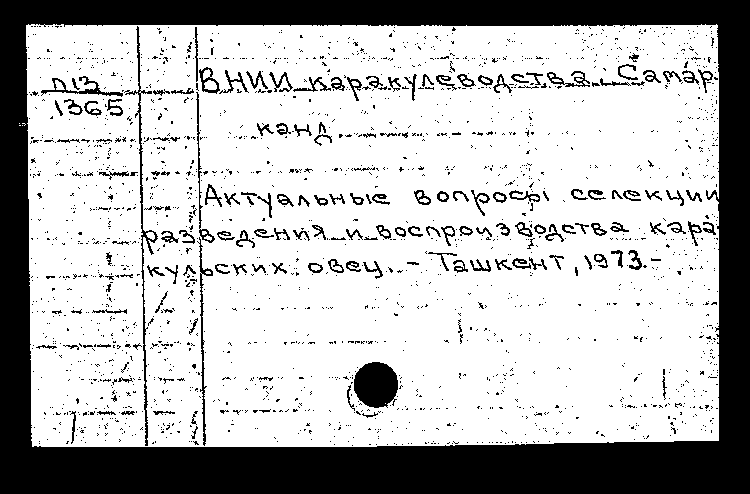 П13
1365
ВНИИ каракулеводства. Самар-
канд.
Актуальные вопросы селекции
разведения и воспроизводства кара-
кульских овец. – Ташкент, 1973. –